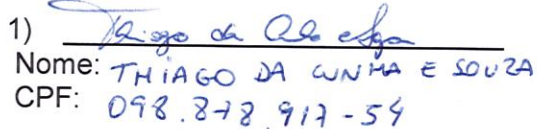 1) Thiago da
Nome: THIAGO DA CUNHA E SOUZA
CPF: 098.878.917-54